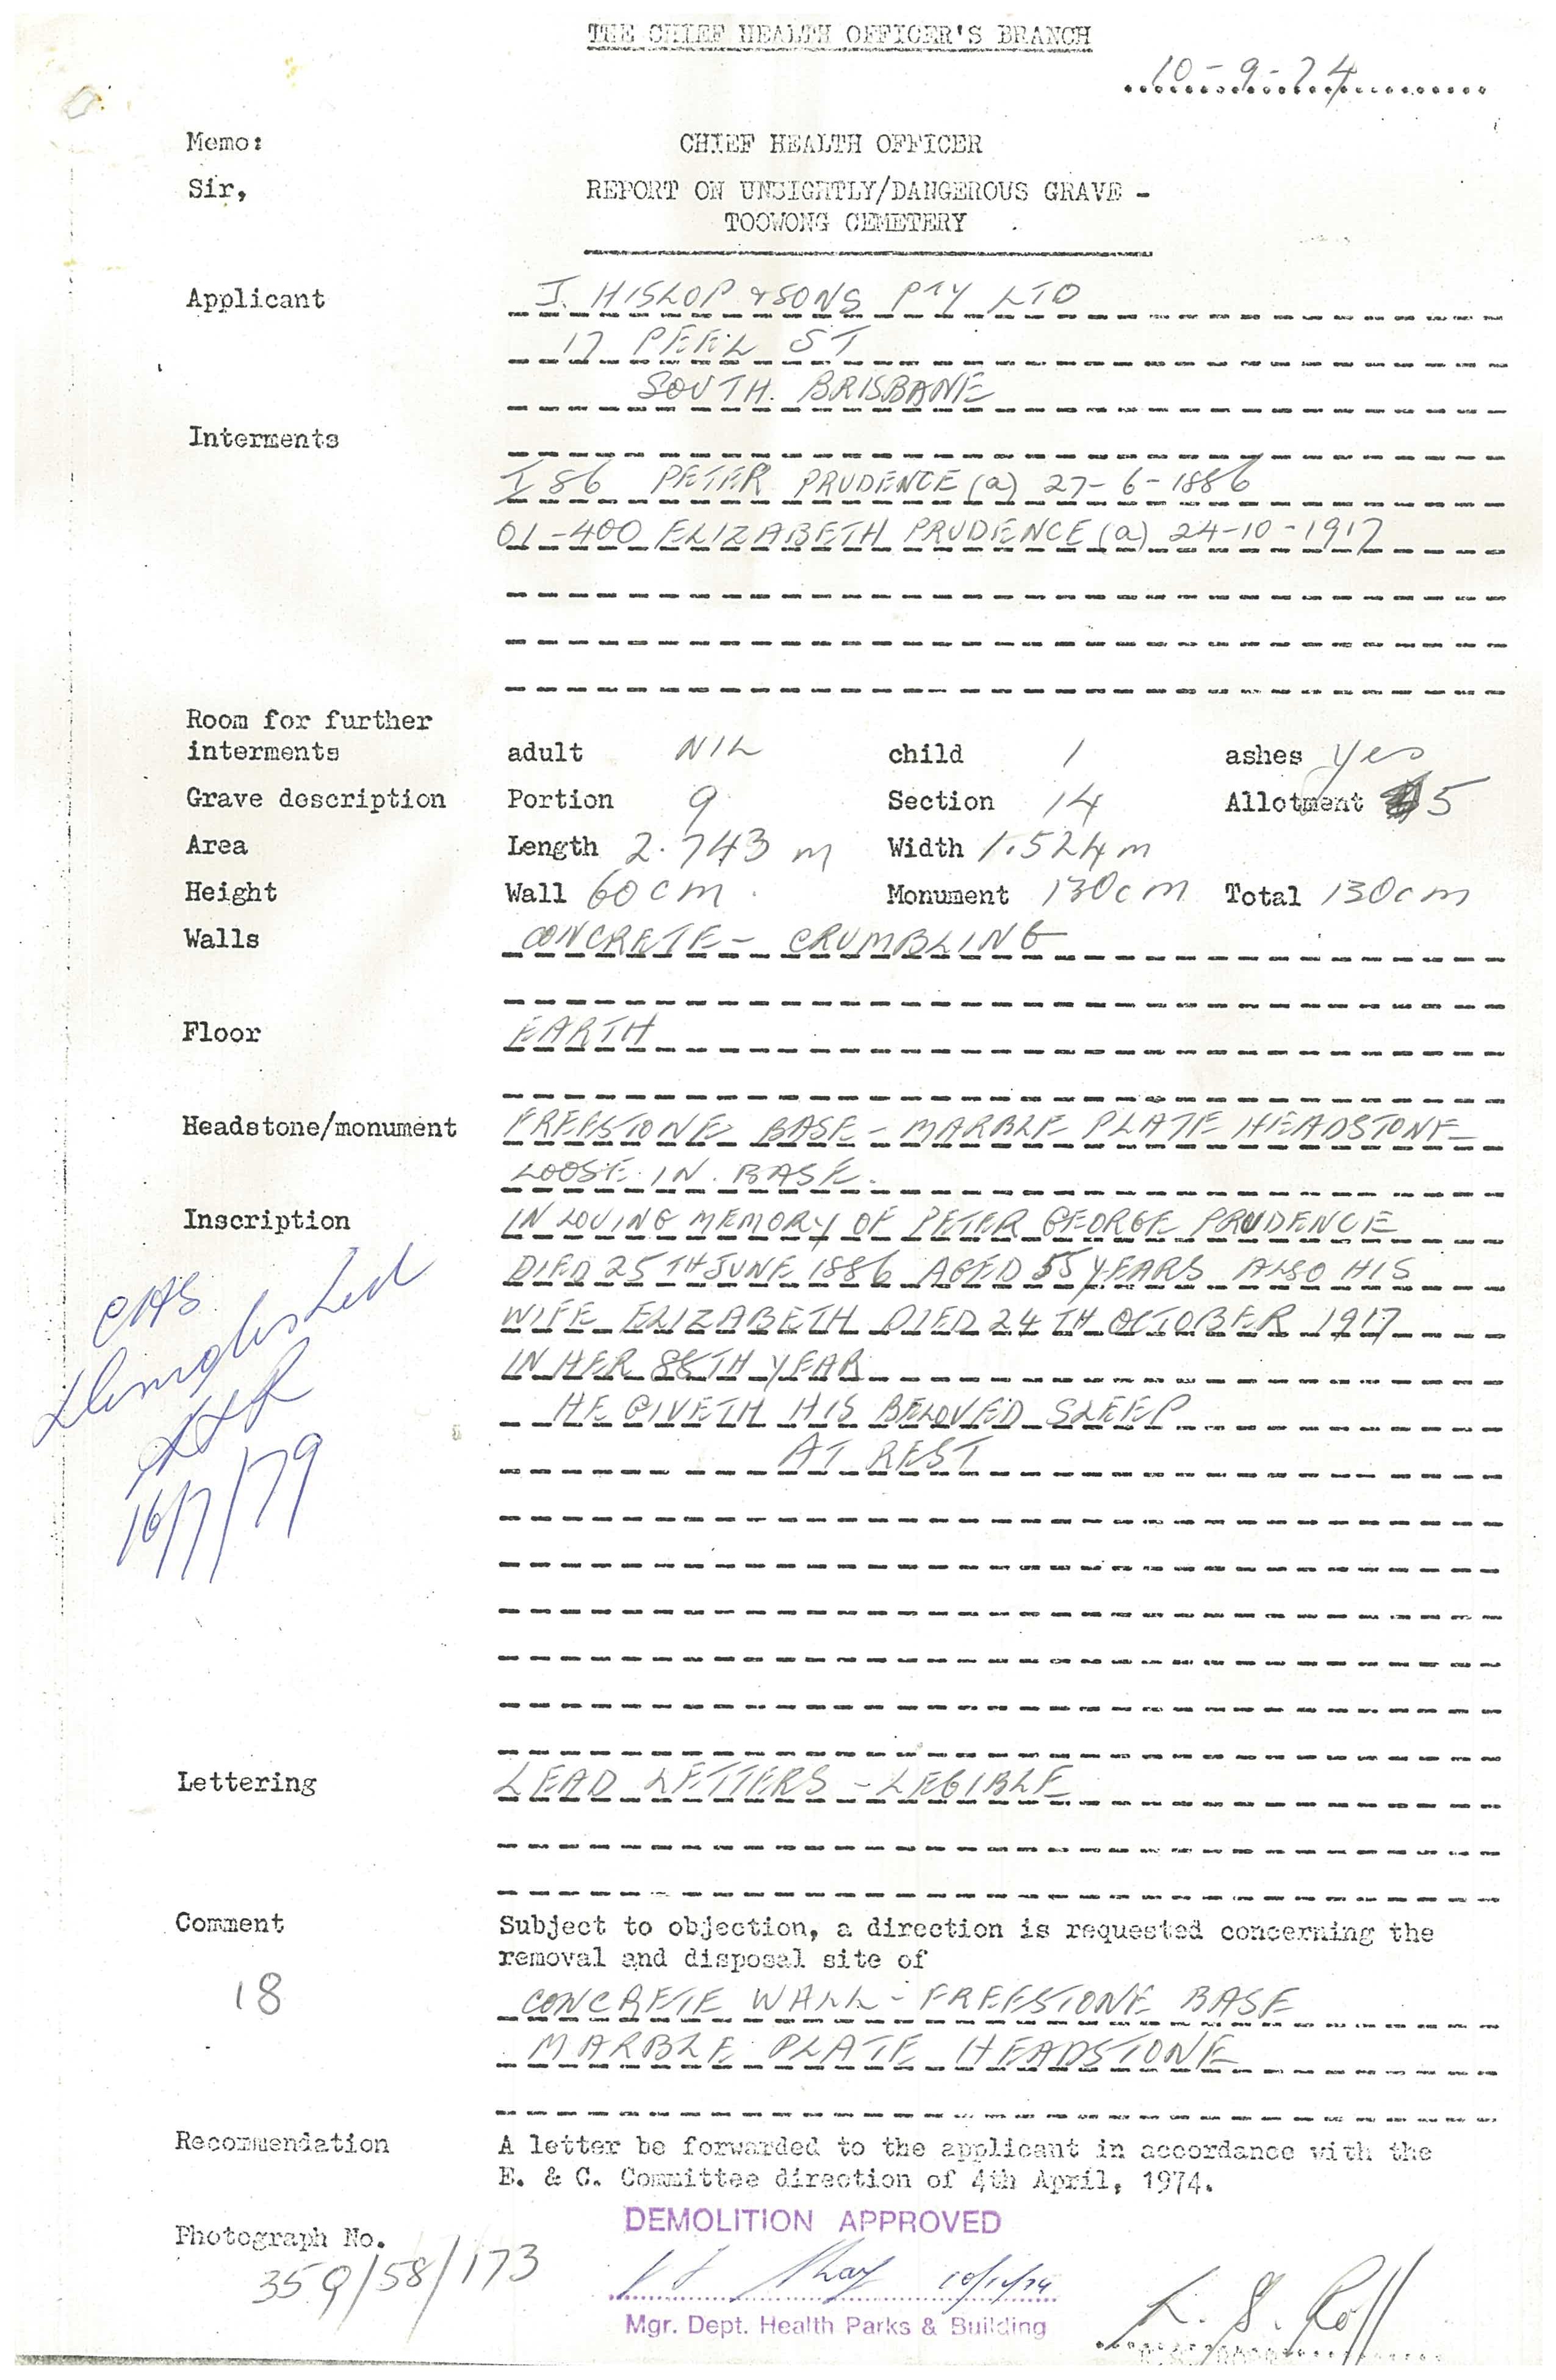 THE CHIEF HEALTH OFFICER'S BRANCH
10-9-74
Memo: CHIEF HEALTH OFFICER
Sir, REPORT ON UNSIGHTLY/DANGEROUS GRAVE -
TOOWONG CEMETERY
Applicant J. HISLOP & SONS PTY LTD
17 PEEL ST
SOUTH. BRISBANE
Interments
I 86 PETER PRUDENCE (a) 27-6-1886
01-400 ELIZABETH PRUDENCE (a) 24-10-1917
Room for further
interments adult NIL child 1 ashes yes
Grave description Portion 9 Section 14 Allotment 5
Area Length 2.743 m Width 1.524 m
Height Wall 60 cm. Monument 130cm Total 130cm
Walls CONCRETE - CRUMBLING
Floor EARTH
Headstone/monument FREESTONE BASE - MARBLE PLATE HEADSTONE
LOOSE IN. BASE.
Inscription IN LOVING MEMORY OF PETER GEORGE PRUDENCE
DIED 25TH JUNE 1886 AGED 55 YEARS ALSO HIS
WIFE ELIZABETH DIED 24TH OCTOBER 1917
IN HER 88TH YEAR
HE GIVETH HIS BELOVED SLEEP
AT REST
16/7/79
Lettering LEAD LETTERS - LEGIBLE
Comment Subject to objection, a direction is requested concerning the
removal and disposal site of
18 CONCRETE WALL - FREESTONE BASE
MARBLE PLATE HEADSTONE
Recommendation A letter be forwarded to the applicant in accordance with the
E. & C. Committee direction of 4th April, 1974.
DEMOLITION APPROVED
Photograph No.
35Q/58/173
Mgr. Dept. Health Parks & Building